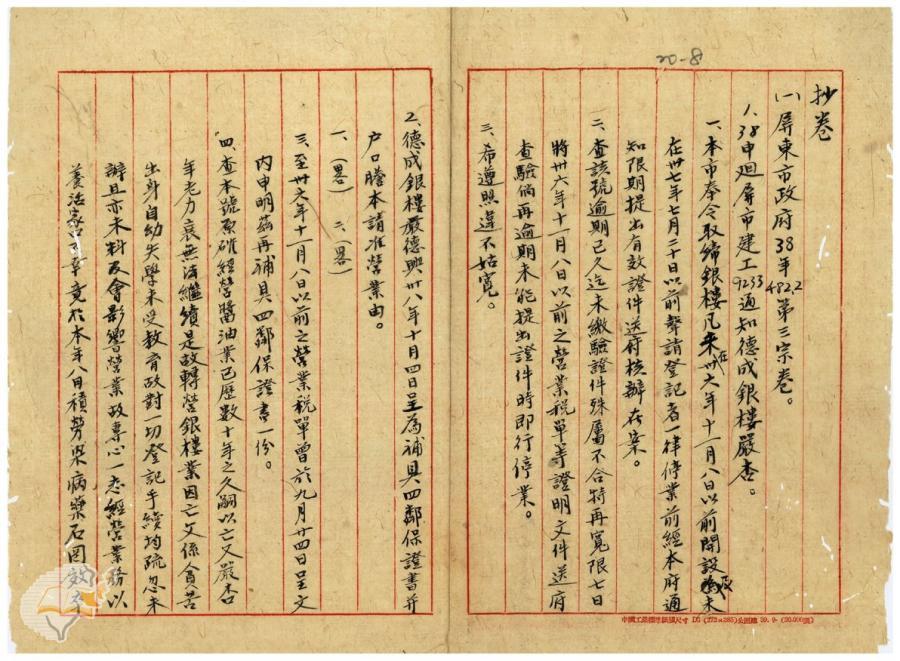 20-8
抄卷
(一)屏東市政府38年482.2第三宗卷。
1、38申迴屏市建工9233通知德成銀樓嚴杏。
一、本市奉令取締銀樓凡未在卅六年十一月八日以前開設及未
在卅七年七月二十日以前聲請登記者一律停業前經本府通
知限期提出有效證件送府核辦在案。
二、查該號逾期已久迄未繳驗證件殊屬不合特再寬限七日
將卅六年十一月八日以前之營業稅單等證明文件送府
查驗倘再逾期未能提出證件時即行停業。
三、希遵照違不姑寬。
2、德成銀樓嚴德興卅八年十月四日呈為補具四鄰保證書并
戶口謄本請准營業由。
一、(畧) 二、(畧)
三、至卅六年十一月八日以前之營業稅單曾於九月廿四日呈文
內申明茲再補具四鄰保證書一份。
四、查本號原礁經營醬油業已歷數十年之久嗣以亡父嚴杏
年老力衰無法繼續是故轉營銀樓業因亡父係貧苦
出身自幼失學未受教育故對一切登記手續均疏忽未
辦且亦未料及會影響營業故專心一志經營業務以
養活家口 幸竟於本年八月積勞累病藥石罔效卒
中國工業標準紙張尺寸 D5 (272×385)公厘 39. 9. (20.000張)